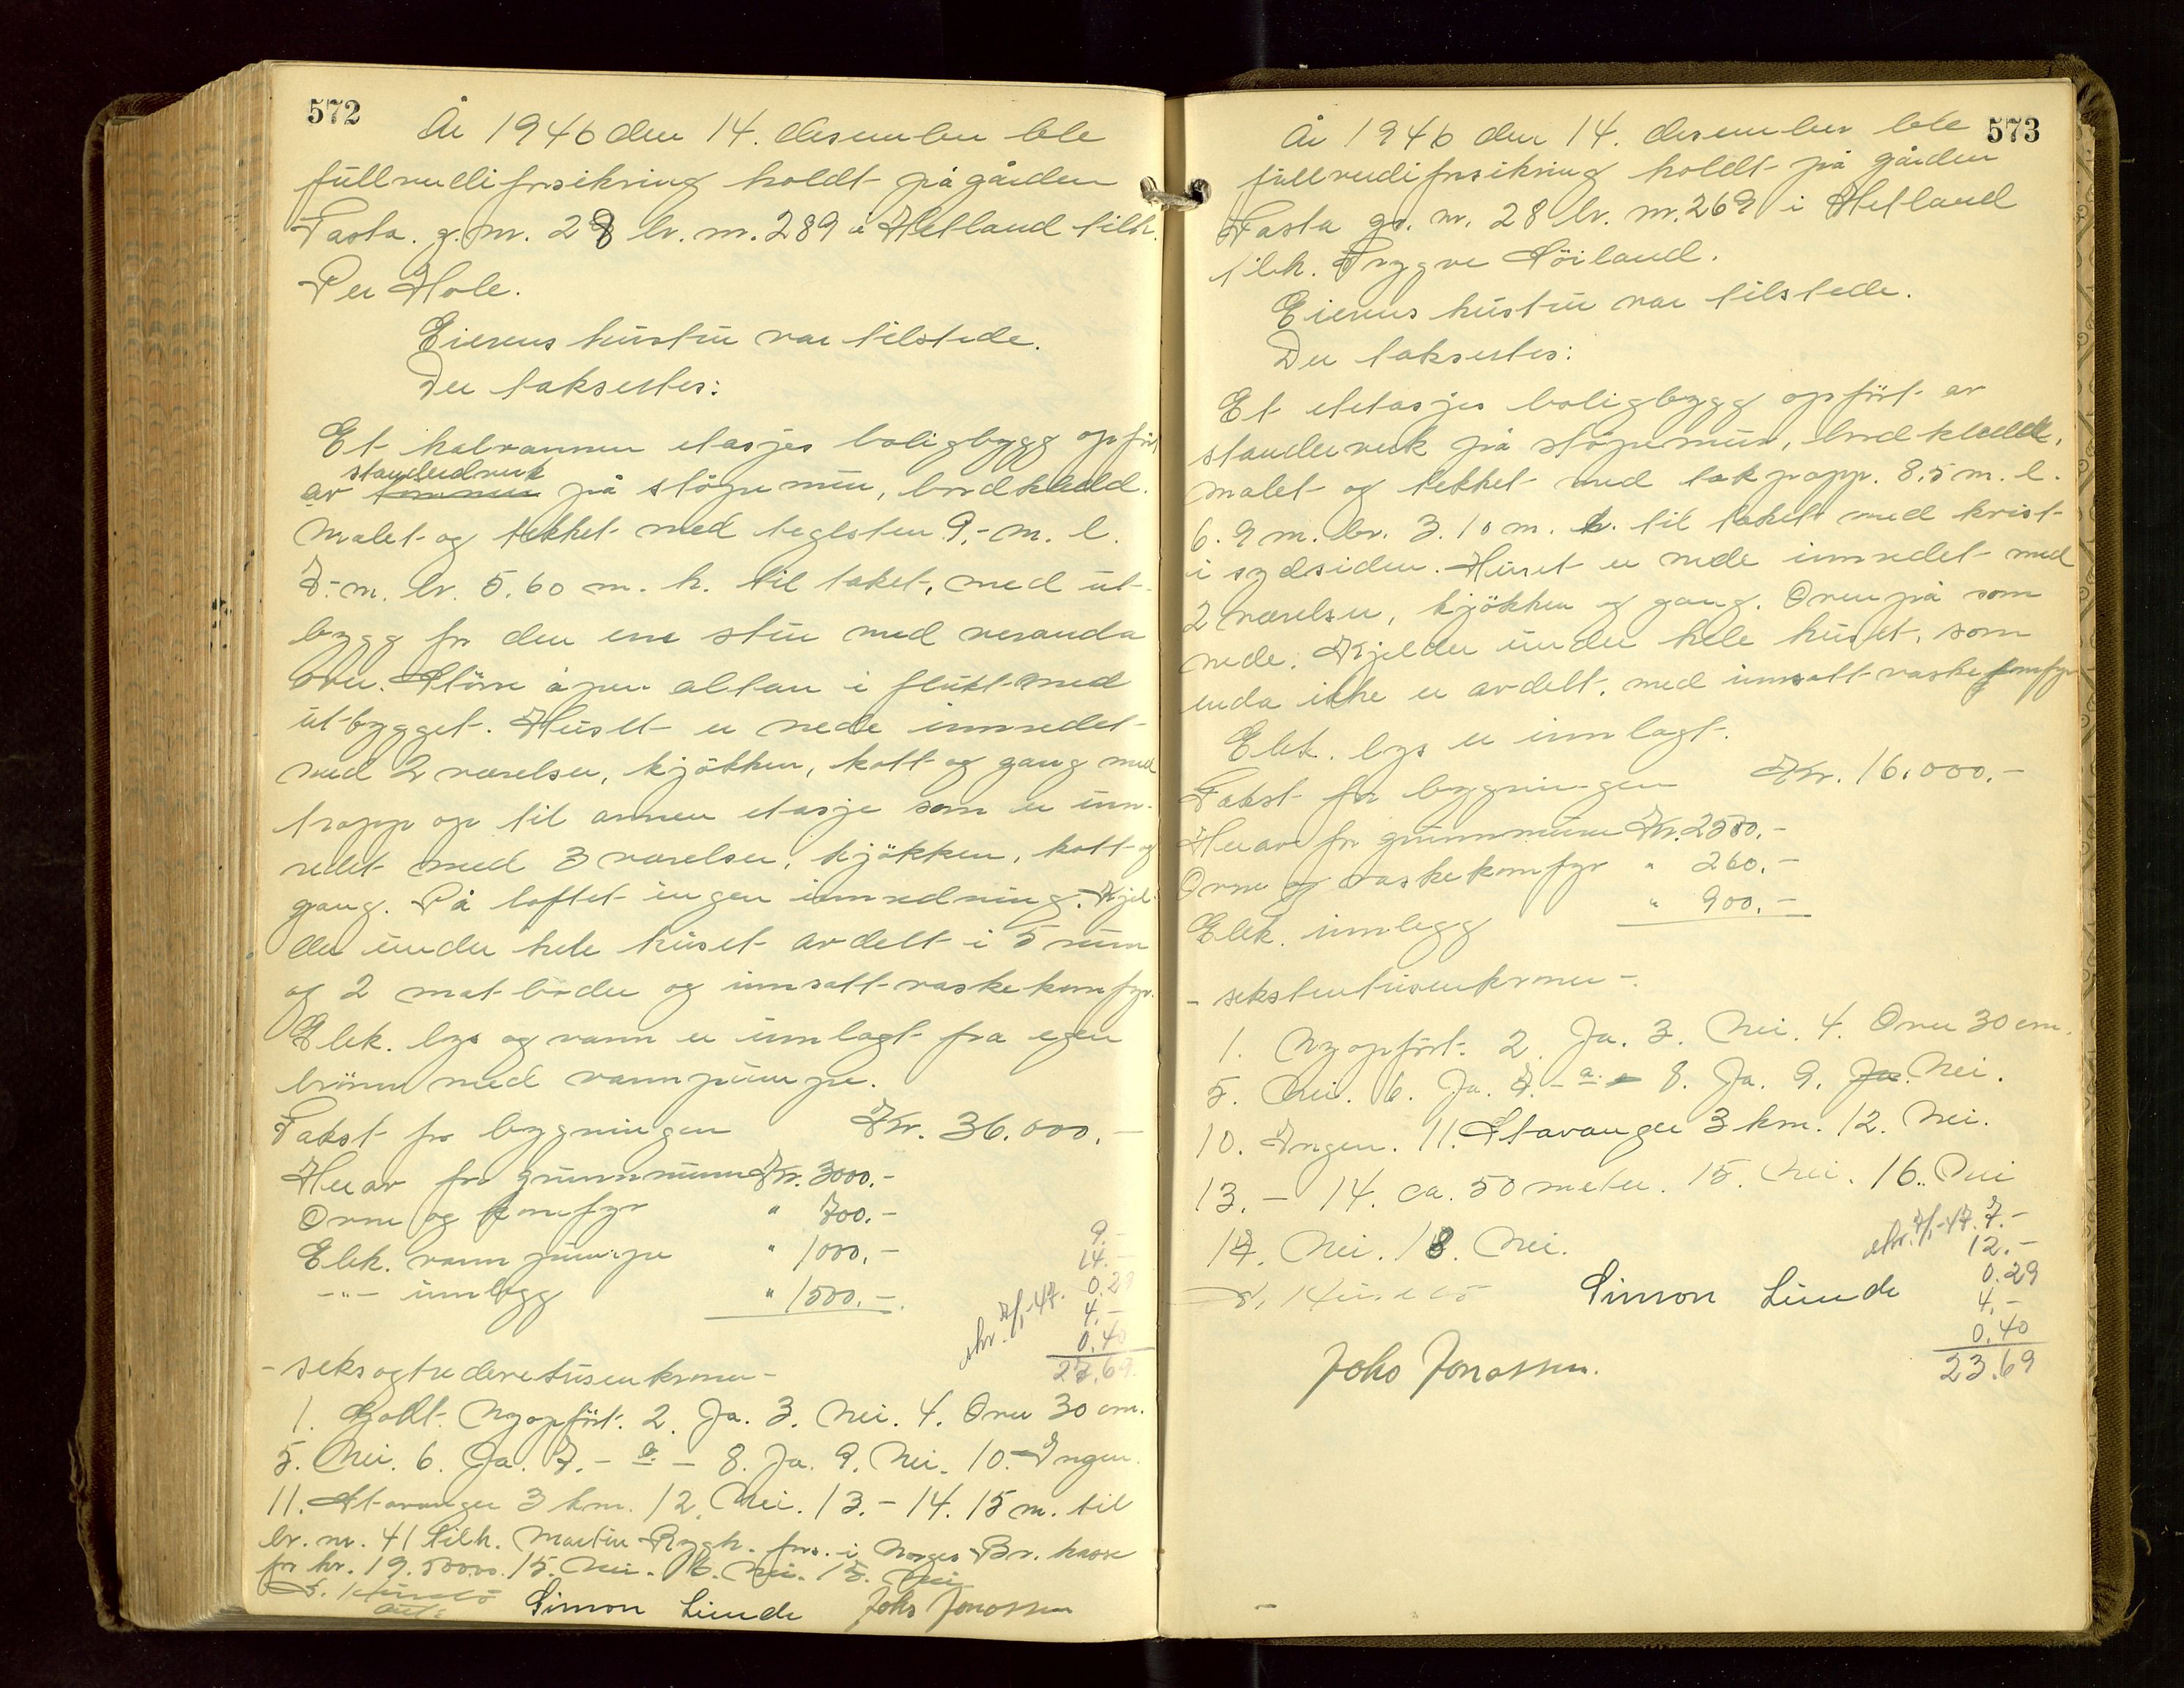 572
År 1946 den 14. desember ble
fullverdiforsikring holdt på gården
Tasta. g. nr. 28 br. nr. 289 i Hetland tilh.
Per Hole.
Eierens hustru var tilstede.
Der taksertes:
Et halvannen etasjes boligbygg opfört
standerverk
av tömmer på stöpemur, bordkledd.
Malet og tekket med teglsten 9,- m. l.
7.- m. br. 5.60 m. h. til taket, med ut-
bygg for den ene stue med veranda
over. Större åpen altan i flukt med
utbygget. Huset er nede innredet
med 2 værelser, kjökken, kott og gang med
trapp op til annen etasje som er inn-
redet med 3 værelser, kjökken, kott og
gang. På loftet ingen innredning. Kjel-
der under hele huset avdelt i 5 rum
og 2 matboder og innsatt vaskekomfyr.
Elek. lys og vann er innlagt fra egen
brönn med vannpumpe.
Takst for bygningen Kr. 36.000.-
Herav for grunnmuren Kr. 3000.-
Ovne og komfyr " 700.-
Elek. vannpumpe " 1000.-
-"- innlegg " 1500.-
9.-
14.-
0.29
4.-
0.40
27.69
skr. 7/1-47.
- seksogtredevetusenkroner -
1. Godt. Nyopfört. 2. Ja. 3. Nei. 4. Over 30 cm.
5. Nei. 6. Ja. 7. - a. - 8. Ja. 9. Nei. 10. Ingen.
11. Stavanger 3 km. 12. Nei. 13. - 14. 15 m. til
br. nr. 41 tilh. Martin Rygh. fors. i Norges Br. kasse
for kr. 19.500.00. 15. Nei. 16. Nei. 18. Nei
Simon Lunde Johs Jonassen
573
År 1946 den 14. desember ble
fullverdiforsikring holdt på gården
Tasta gr. nr. 28 br. nr. 269 i Hetland
tilh. Trygve Söiland.
Eierens hustru var tilstede.
Der taksertes:
Et etetasjes boligbygg opfört av
standerverk på stöpemur, bordkledd,
malet og tekket med takpapp. 8.5 m. l.
6.9 m. br. 3.10 m. h. til taket med krist
i sydsiden. Huset er nede innredet med
2 værelser, kjökken og gang. Ovenpå som
nede. Kjelder under hele huset, som
enda ikke er avdelt, med innsatt vaskekomfyr
Elek. lys er innlagt.
Takst for bygningen Kr. 16.000.-
Herav for grunnmuren Kr. 2500.-
Ovne og vaskekomfyr " 260.-
Elek. innlegg " 900.-
- sekstentusenkroner -
1. Nyopfört. 2. Ja. 3. Nei. 4. Over 30 cm.
5. Nei. 6. Ja. 7. - a. - 8. Ja. 9. Ja. Nei.
10. Ingen. 11. Stavanger 3 km. 12. Nei.
13. - 14. ca. 50 meter. 15. Nei. 16. Nei
17. Nei. 18. Nei.
skr. 7/1-47. 7.-
12.-
0.29
4.-
0.40
23.69
Simon Lunde
Johs Jonassen.